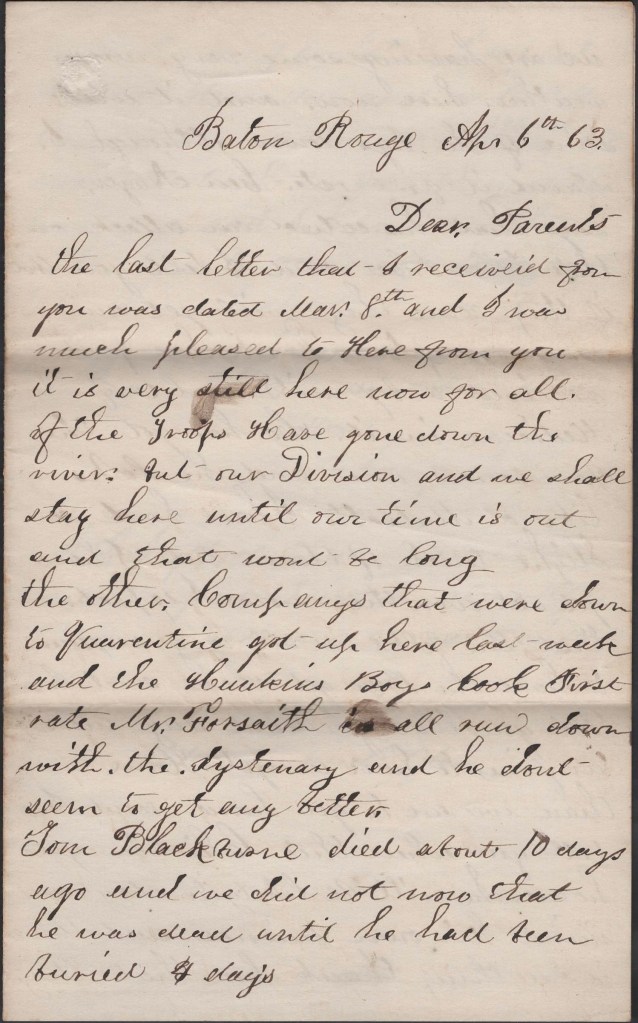 Baton Rouge Apr 6th 63.
Dear. Parents
the last letter that I received from
you was dated Mar. 8th and I was
much pleased to Here from you
it is very still here now for all.
of the Troops Have gone down the
river. but our Division and we shall
stay here until our time is out
and that wont be long
the other. Companys that were down
to Quarentine got up here last week
and the Hunkins Boys look First
rate Mr. Forsaith is all run down
with. the. dystenary and he dont
seem to get any better.
Tom Blackburne died about 10 days
ago and we did not now that
he was dead until he had been
buried days